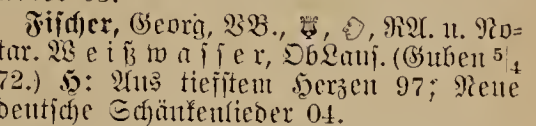 Fischer, Georg, VB., RA. u. No-
tar. Weißwasser, ObLaus. (Guben 5/4
72.) H: Aus tiefstem Herzen 97; Neue
deutsche Schänkenlieder 04.